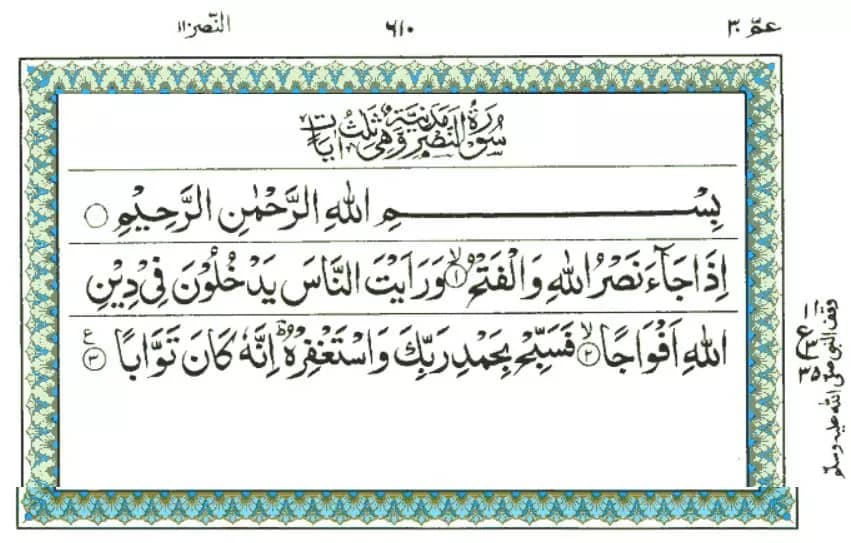 عمّ ٣٠
٦١٠
النّصر ١١٠
سُوْرَةُ النَّصْرِ مَدَنِيَّةٌ وَّهِيَ ثَلٰثُ اٰيَاتٍ
بِسْمِ اللهِ الرَّحْمٰنِ الرَّحِيْمِ ○
اِذَا جَآءَ نَصْرُ اللهِ وَالْفَتْحُ ۙ﴿١﴾ وَرَاَيْتَ النَّاسَ يَدْخُلُوْنَ فِيْ دِيْنِ
اللهِ اَفْوَاجًا ۙ﴿٢﴾ فَسَبِّحْ بِحَمْدِ رَبِّكَ وَاسْتَغْفِرْهُ ؕ اِنَّهٗ كَانَ تَوَّابًا ﴿٣﴾ ع
وقف النبی صلی اللہ علیہ وسلم
١
ع ٣
٣٥